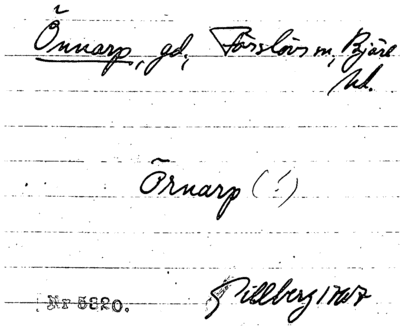 Önnarp, gd, Förslövs sn, Bjäre
hd.
Örnarp (!)
Nr 5320. Gillberg 1767